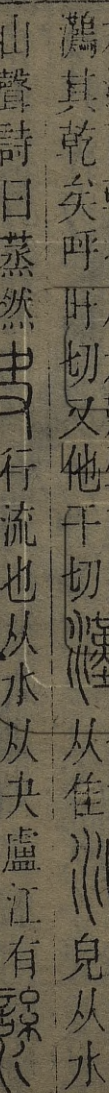 其乾矣呼旰切又他干切灘从隹皃从水
山聲詩曰蒸然行流也从水从夬廬江有